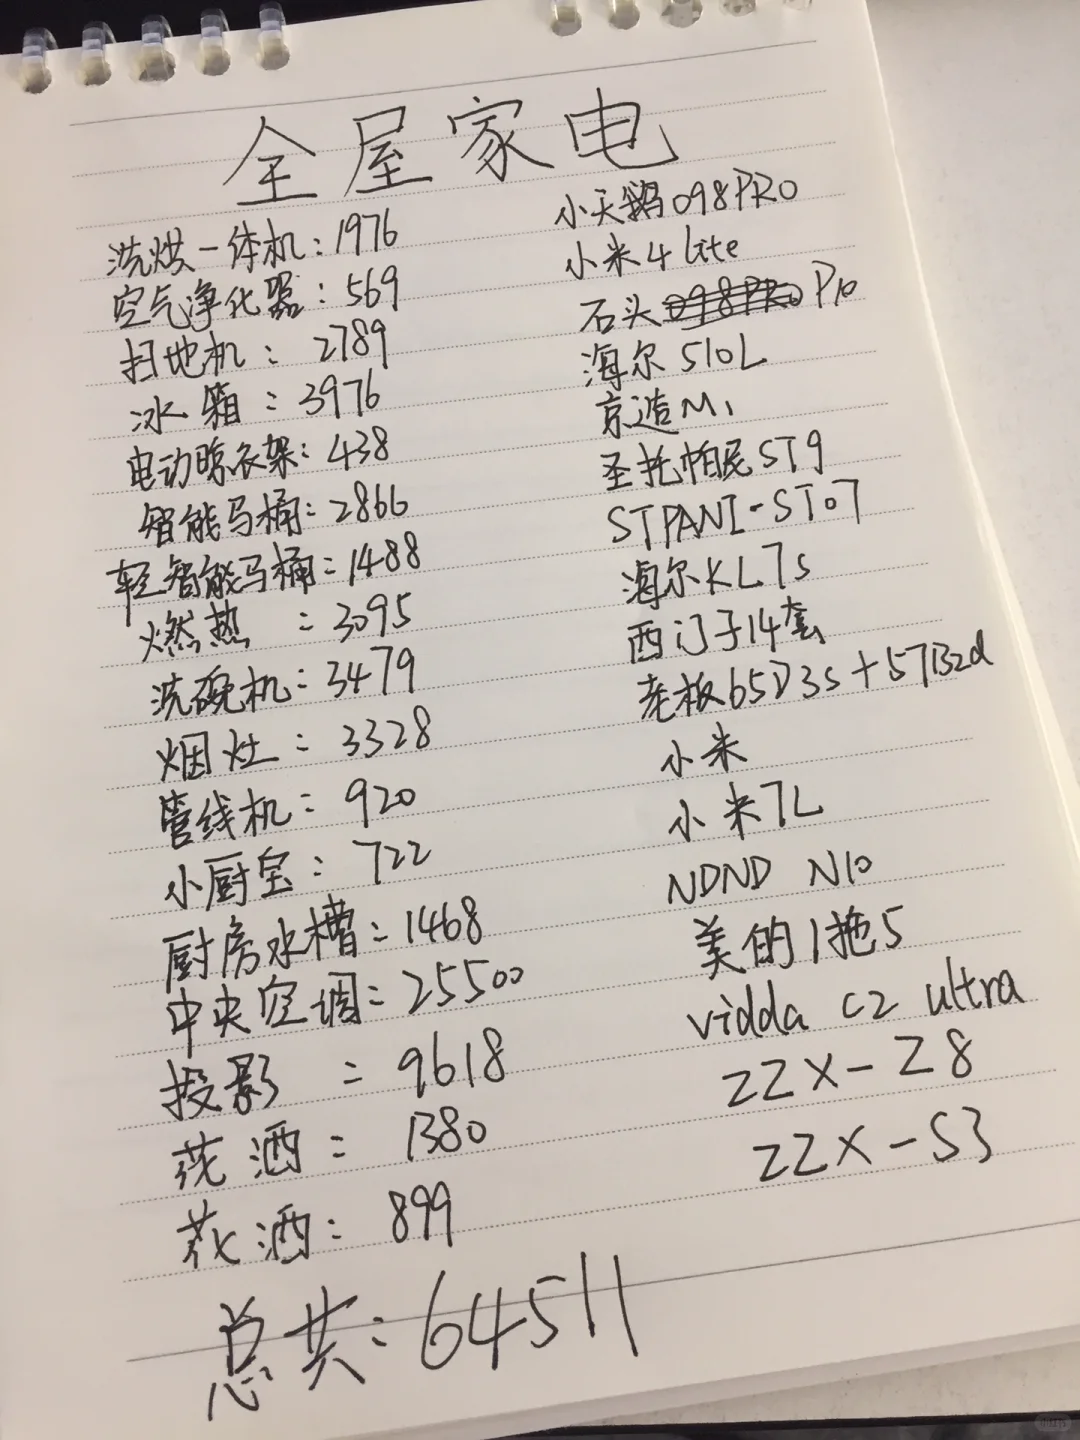 全屋家电
洗烘一体机:1976 小天鹅098PRO
空气净化器:569 小米4 lite
扫地机:2789 石头 P10
冰箱:3976 海尔510L
电动晾衣架:438 京造M1
智能马桶:2866 圣托帕尼ST9
轻智能马桶:1488 STPANI-ST07
燃热:3095 海尔KL7s
洗碗机:3479 西门子14套
烟灶:3328 老板65D3S+57B2d
管线机:920 小米
小厨宝:722 小米7L
厨房水槽:1468 NDND N10
中央空调:25500 美的1拖5
投影:9618 vidda C2 ultra
花洒:1380 ZZX-Z8
花洒:899 ZZX-S3
总共:64511